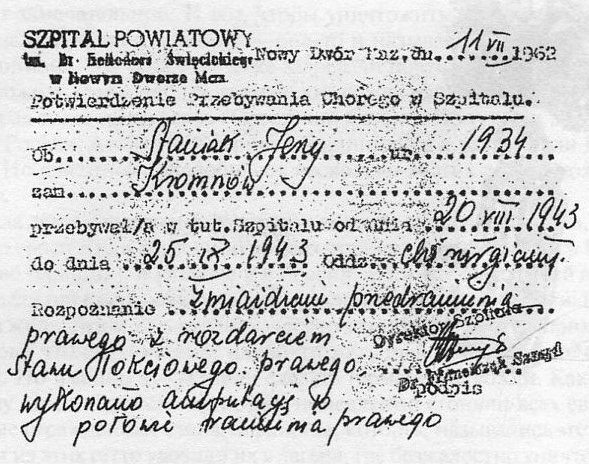 SZPITAL POWIATOWY
im. Dr Heliodora Święcickiego
w Nowym Dworze Maz.
Nowy Dwór Maz. dn. 11 VII 1962
Potwierdzenie Przebywania Chorego w Szpitalu.
Ob. Staniak Jerzy ur. 1934
zam. Kromnów
przebywał/a w tut. Szpitalu od dnia 20 VIII 1943
do dnia 25 IX 1943 Oddz. chirurgiczny.
Rozpoznanie zmiażdżenie przedramienia
prawego z rozdarciem
stawu łokciowego prawego
wykonano amputację w
połowie ramienia prawego
Dyrektor Szpitala
Dr Franciszek
podpis